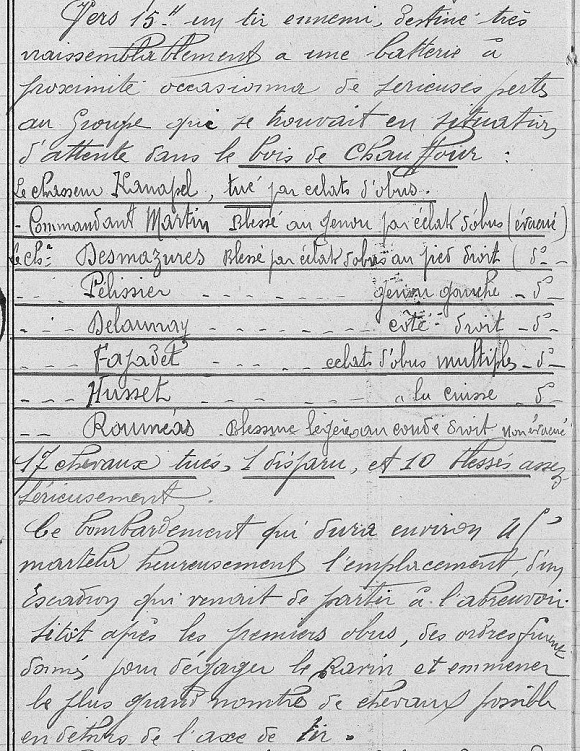 Vers 15h un tir ennemi, destiné très
vraisemblablement a une batterie à
proximité occasionna de sérieuses pertes
au Groupe qui se trouvait en situation
d'attente dans le bois de Chauffour :
Le chasseur Kanapel, tué par eclats d'obus.
- Commandant Martin Blessé au genou par éclat d'obus (évacué)
Le chr Desmazures Blessé par éclat d'obus au pied droit ( do -
- - - Pélissier - - - - - - genou gauche - do -
- - - Delaunay - - - - - - côté droit - do -
- - - Fajadet - - - - eclats d'obus multiples - do -
- - - Husset - - - - - - a la cuisse - do -
- - - Rouméas - Blessure légère au coude droit non évacué
17 chevaux tués, 1 disparu, et 10 blessés assez
sérieusement.
Ce bombardement qui dura environ
martela heureusement l'emplacement d'un
Escadron qui venait de partir à l'abreuvoir.
Sitôt après les premiers obus, des ordres furent
donnés pour dégager le Ravin et emmener
le plus grand nombre de chevaux possible
en dehors de l'axe de tir.